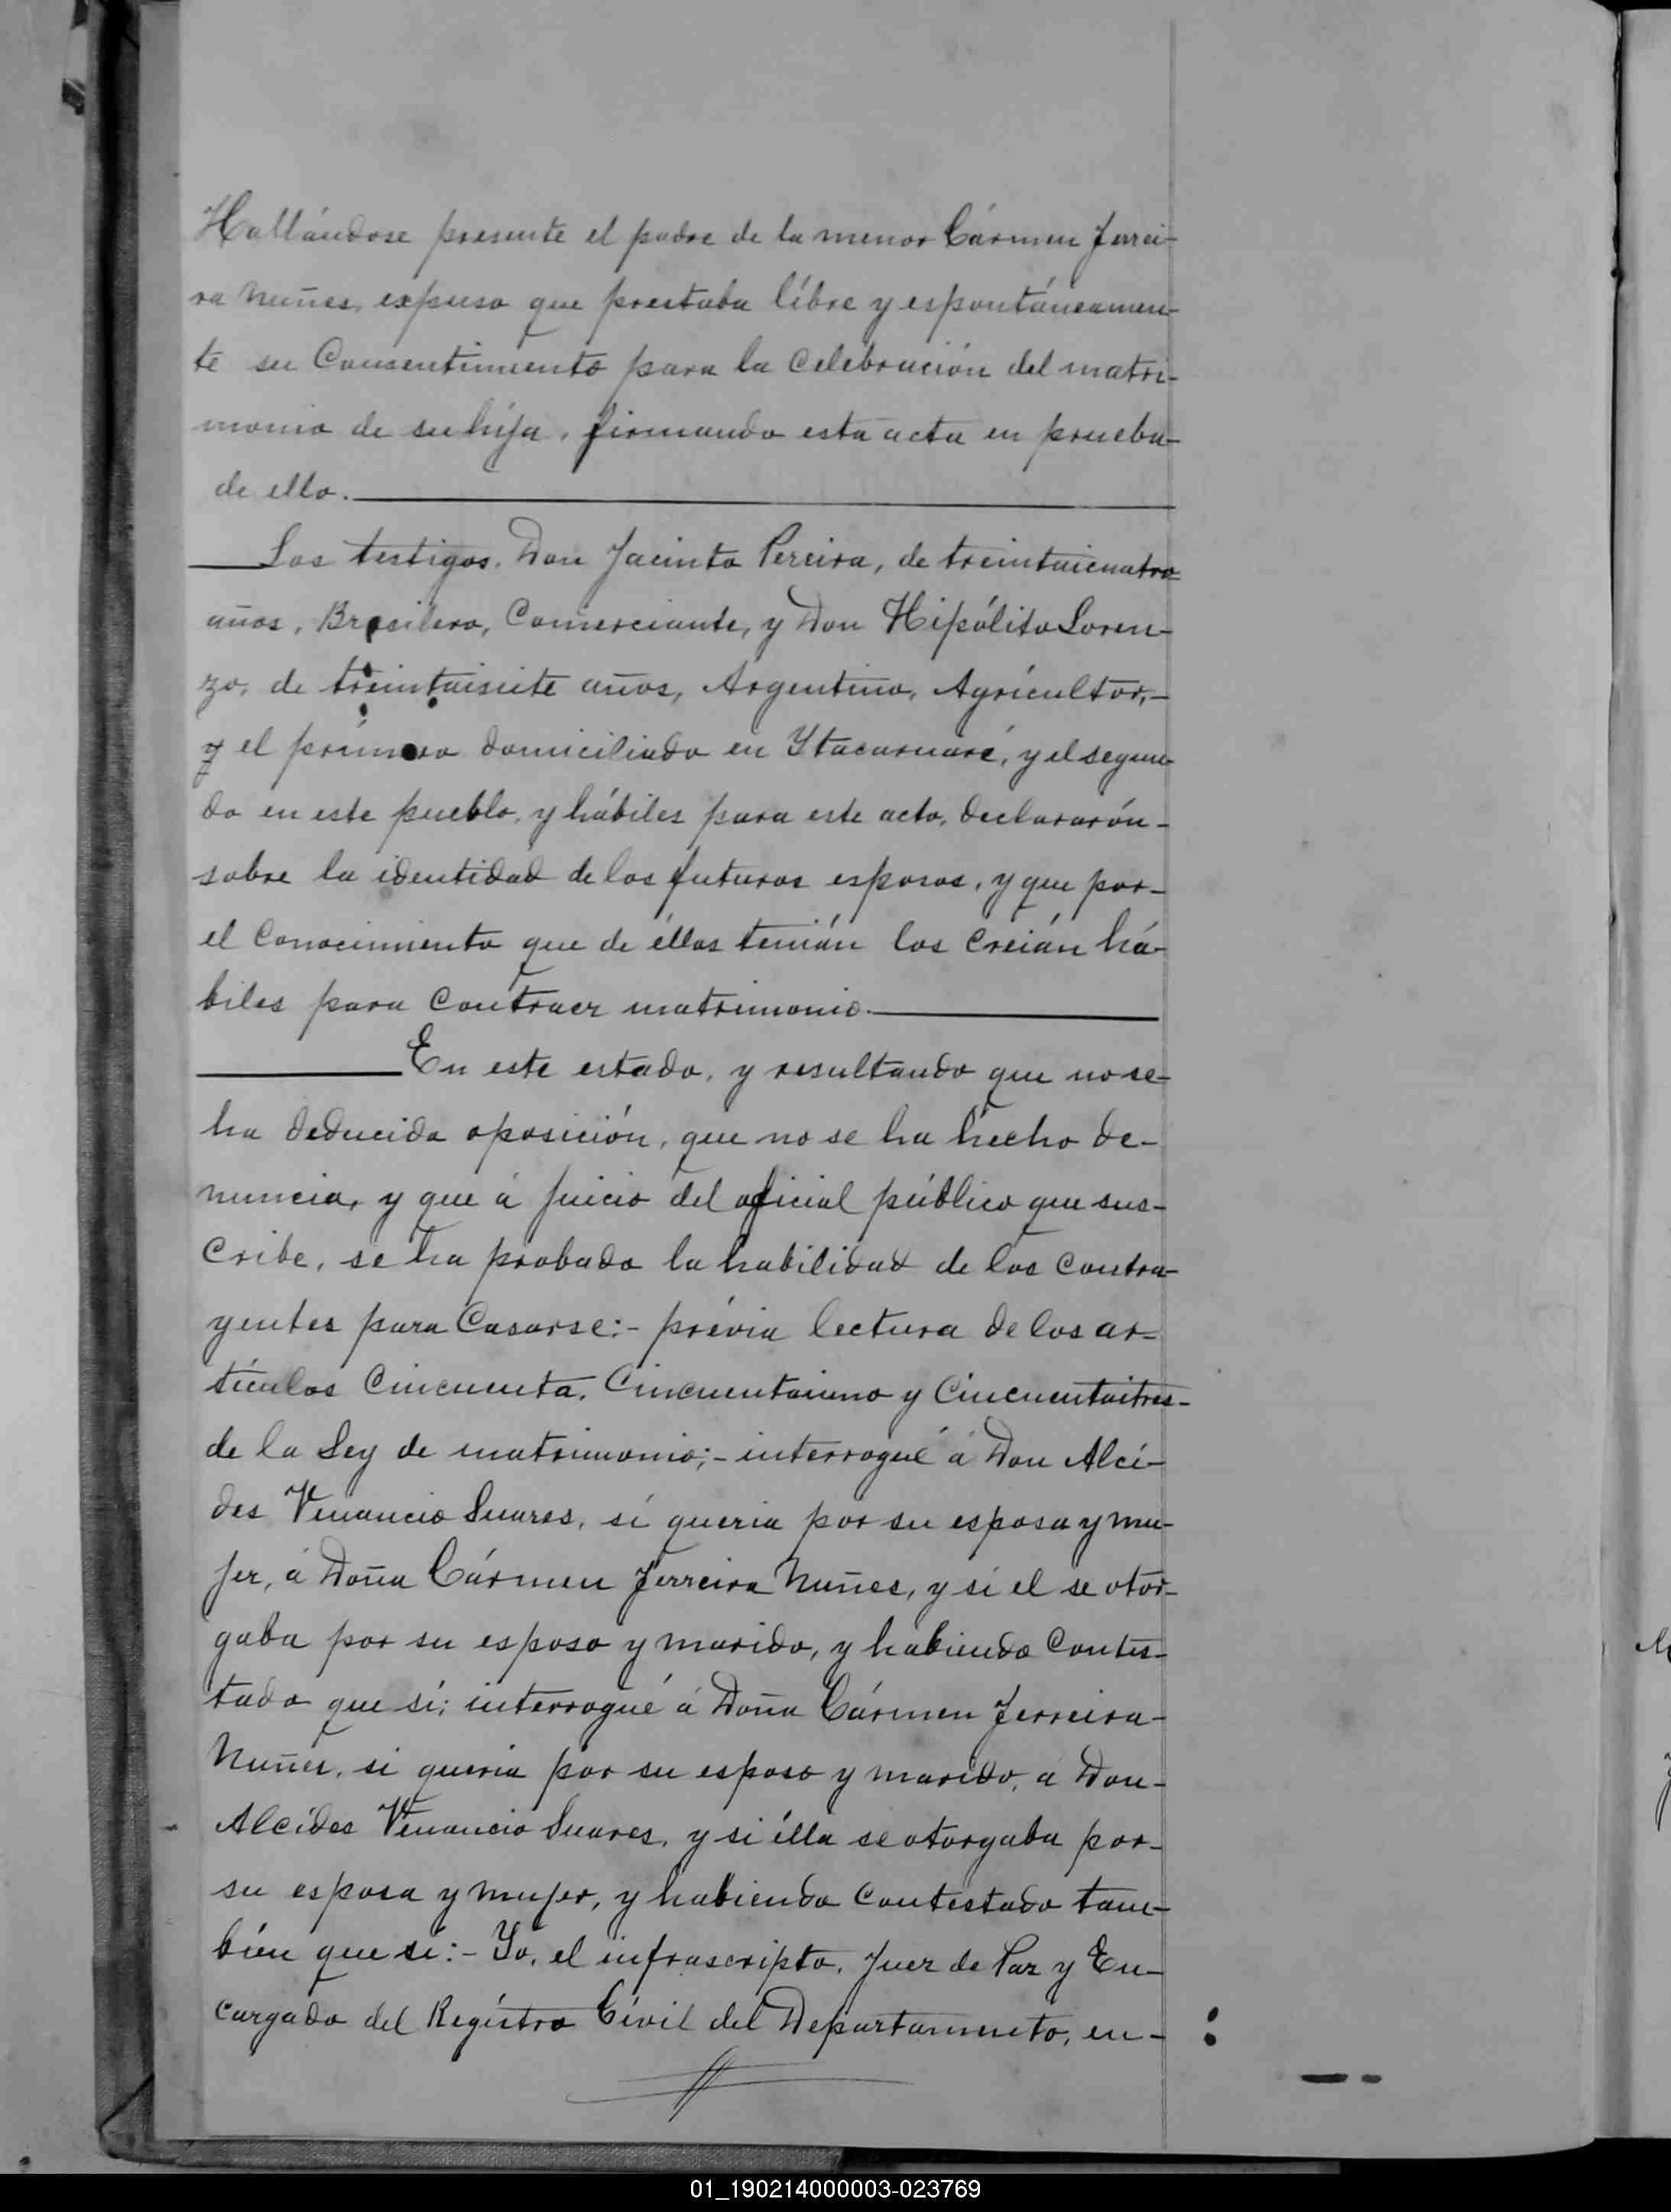 Hallándose presente el padre de la menor Cármen Ferrei-
ra Nuñes, expuso que prestaba líbre y espontáneamen-
te su Consentimiento para la Celebración del matri-
monio de su hija, firmando esta acta en prueba-
de ello.
Los testigos, Don Jacinto Pereira, de treintaicuatro
años, Brasilero, Comerciante, y Don Hipólito Loren-
zo, de treintaisiete años, Argentino, Agrícultor,-
y el primero domiciliado en Ytacaruaré, y el segun-
do en este pueblo, y hábiles para este acto, declararón-
sobre la identidad de los futuros esposos, y que por-
el Conocimiento que de éllos tenián los Creián há-
biles para Contraer matrimonio.
En este estado, y resultando que no se-
ha deducido oposición, que no se ha hecho de-
nuncia, y que á juicio del oficial público que sus-
cribe, se ha probado la habilidad de los Contra-
yentes para Casarse:- prévia lectura de los ar-
tículos Cincuenta, Cincuentaiuno y Cincuentaitres-
de la Ley de matrimonio;- interrogué á Don Alcí-
des Venancio Suares, si queria por su esposa y mu-
jer, á Doña Cármen Ferreira Nuñes, y si el se otor-
gaba por su esposo y marido, y habiendo Contes-
tado que sí; interrogué á Doña Cármen Ferreira-
Nuñes, si queria por su esposo y marido, á Don-
Alcídes Venancio Suares, y si élla se otorgaba por-
su esposa y mujer, y habiendo Contestado tam-
bién que sí:- Yo, el infrascripto, Juez de Paz y En-
cargado del Regístro Cívil del Departamento, en-
01_190214000003-023769